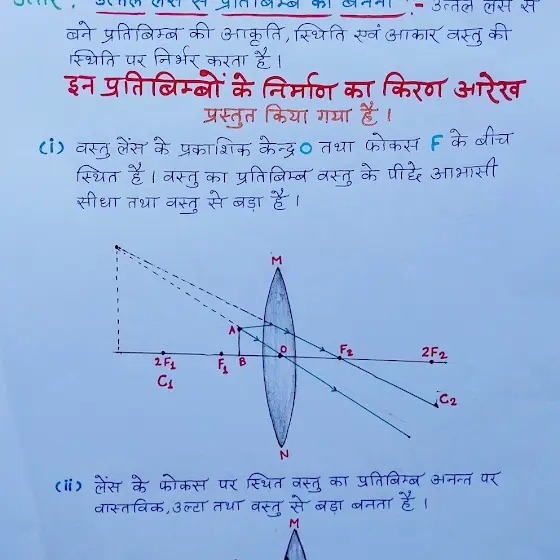 उत्तर : उत्तल लेंस से प्रतिबिम्ब का बनना :- उत्तल लेंस से
बने प्रतिबिम्ब की आकृति, स्थिति एवं आकार वस्तु की
स्थिति पर निर्भर करता है ।
इन प्रतिबिम्बों के निर्माण का किरण आरेख
प्रस्तुत किया गया है ।
(i) वस्तु लेंस के प्रकाशिक केन्द्र O तथा फोकस F के बीच
स्थित है । वस्तु का प्रतिबिम्ब वस्तु के पीछे आभासी
सीधा तथा वस्तु से बड़ा है ।
M
A
2F₁ F₁ B O F₂ 2F₂
C₁
C₂
N
(ii) लेंस के फोकस पर स्थित वस्तु का प्रतिबिम्ब अनन्त पर
वास्तविक, उल्टा तथा वस्तु से बड़ा बनता है ।
M